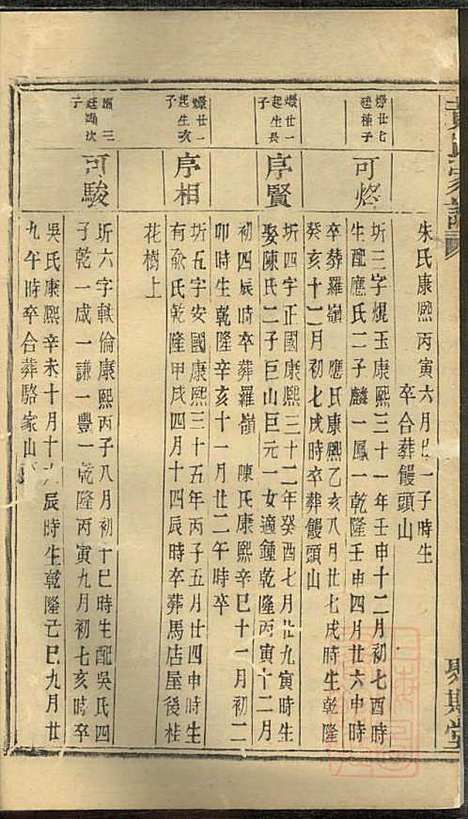 朱氏康熙丙寅六月廿一子時生
卒合葬饅頭山
可燈
圻三字焜玉康熙三十一年壬申十二月初七酉時
生配應氏二子麟一鳳一乾隆壬申四月廿六申時
卒葬羅嶺 應氏康熙乙亥八月廿七戌時生乾隆
癸亥十二月初七戌時卒葬饅頭山
廿一
起生長
子
序賢
圻四字正國康熙三十二年癸酉七月廿九寅時生
娶陳氏二子巨山巨元一女適鍾乾隆丙寅十二月
初四辰時卒葬羅嶺 陳氏康熙辛巳十一月初二
卯時生乾隆辛亥十一月廿二午時卒
廿一
起生亥
子
序相
圻五字安國康熙三十五年丙子五月廿四申時生
有俞氏乾隆甲戌四月十四辰時卒葬馬店屋後桂
花樹上
三
次
子
可駿
圻六字軼倫康熙丙子八月初十巳時生配吳氏四
子乾一咸一謙一豐一乾隆丙寅九月初七亥時卒
吳氏康熙辛未十月十六辰時生乾隆己巳九月廿
九午時卒合葬駱家山